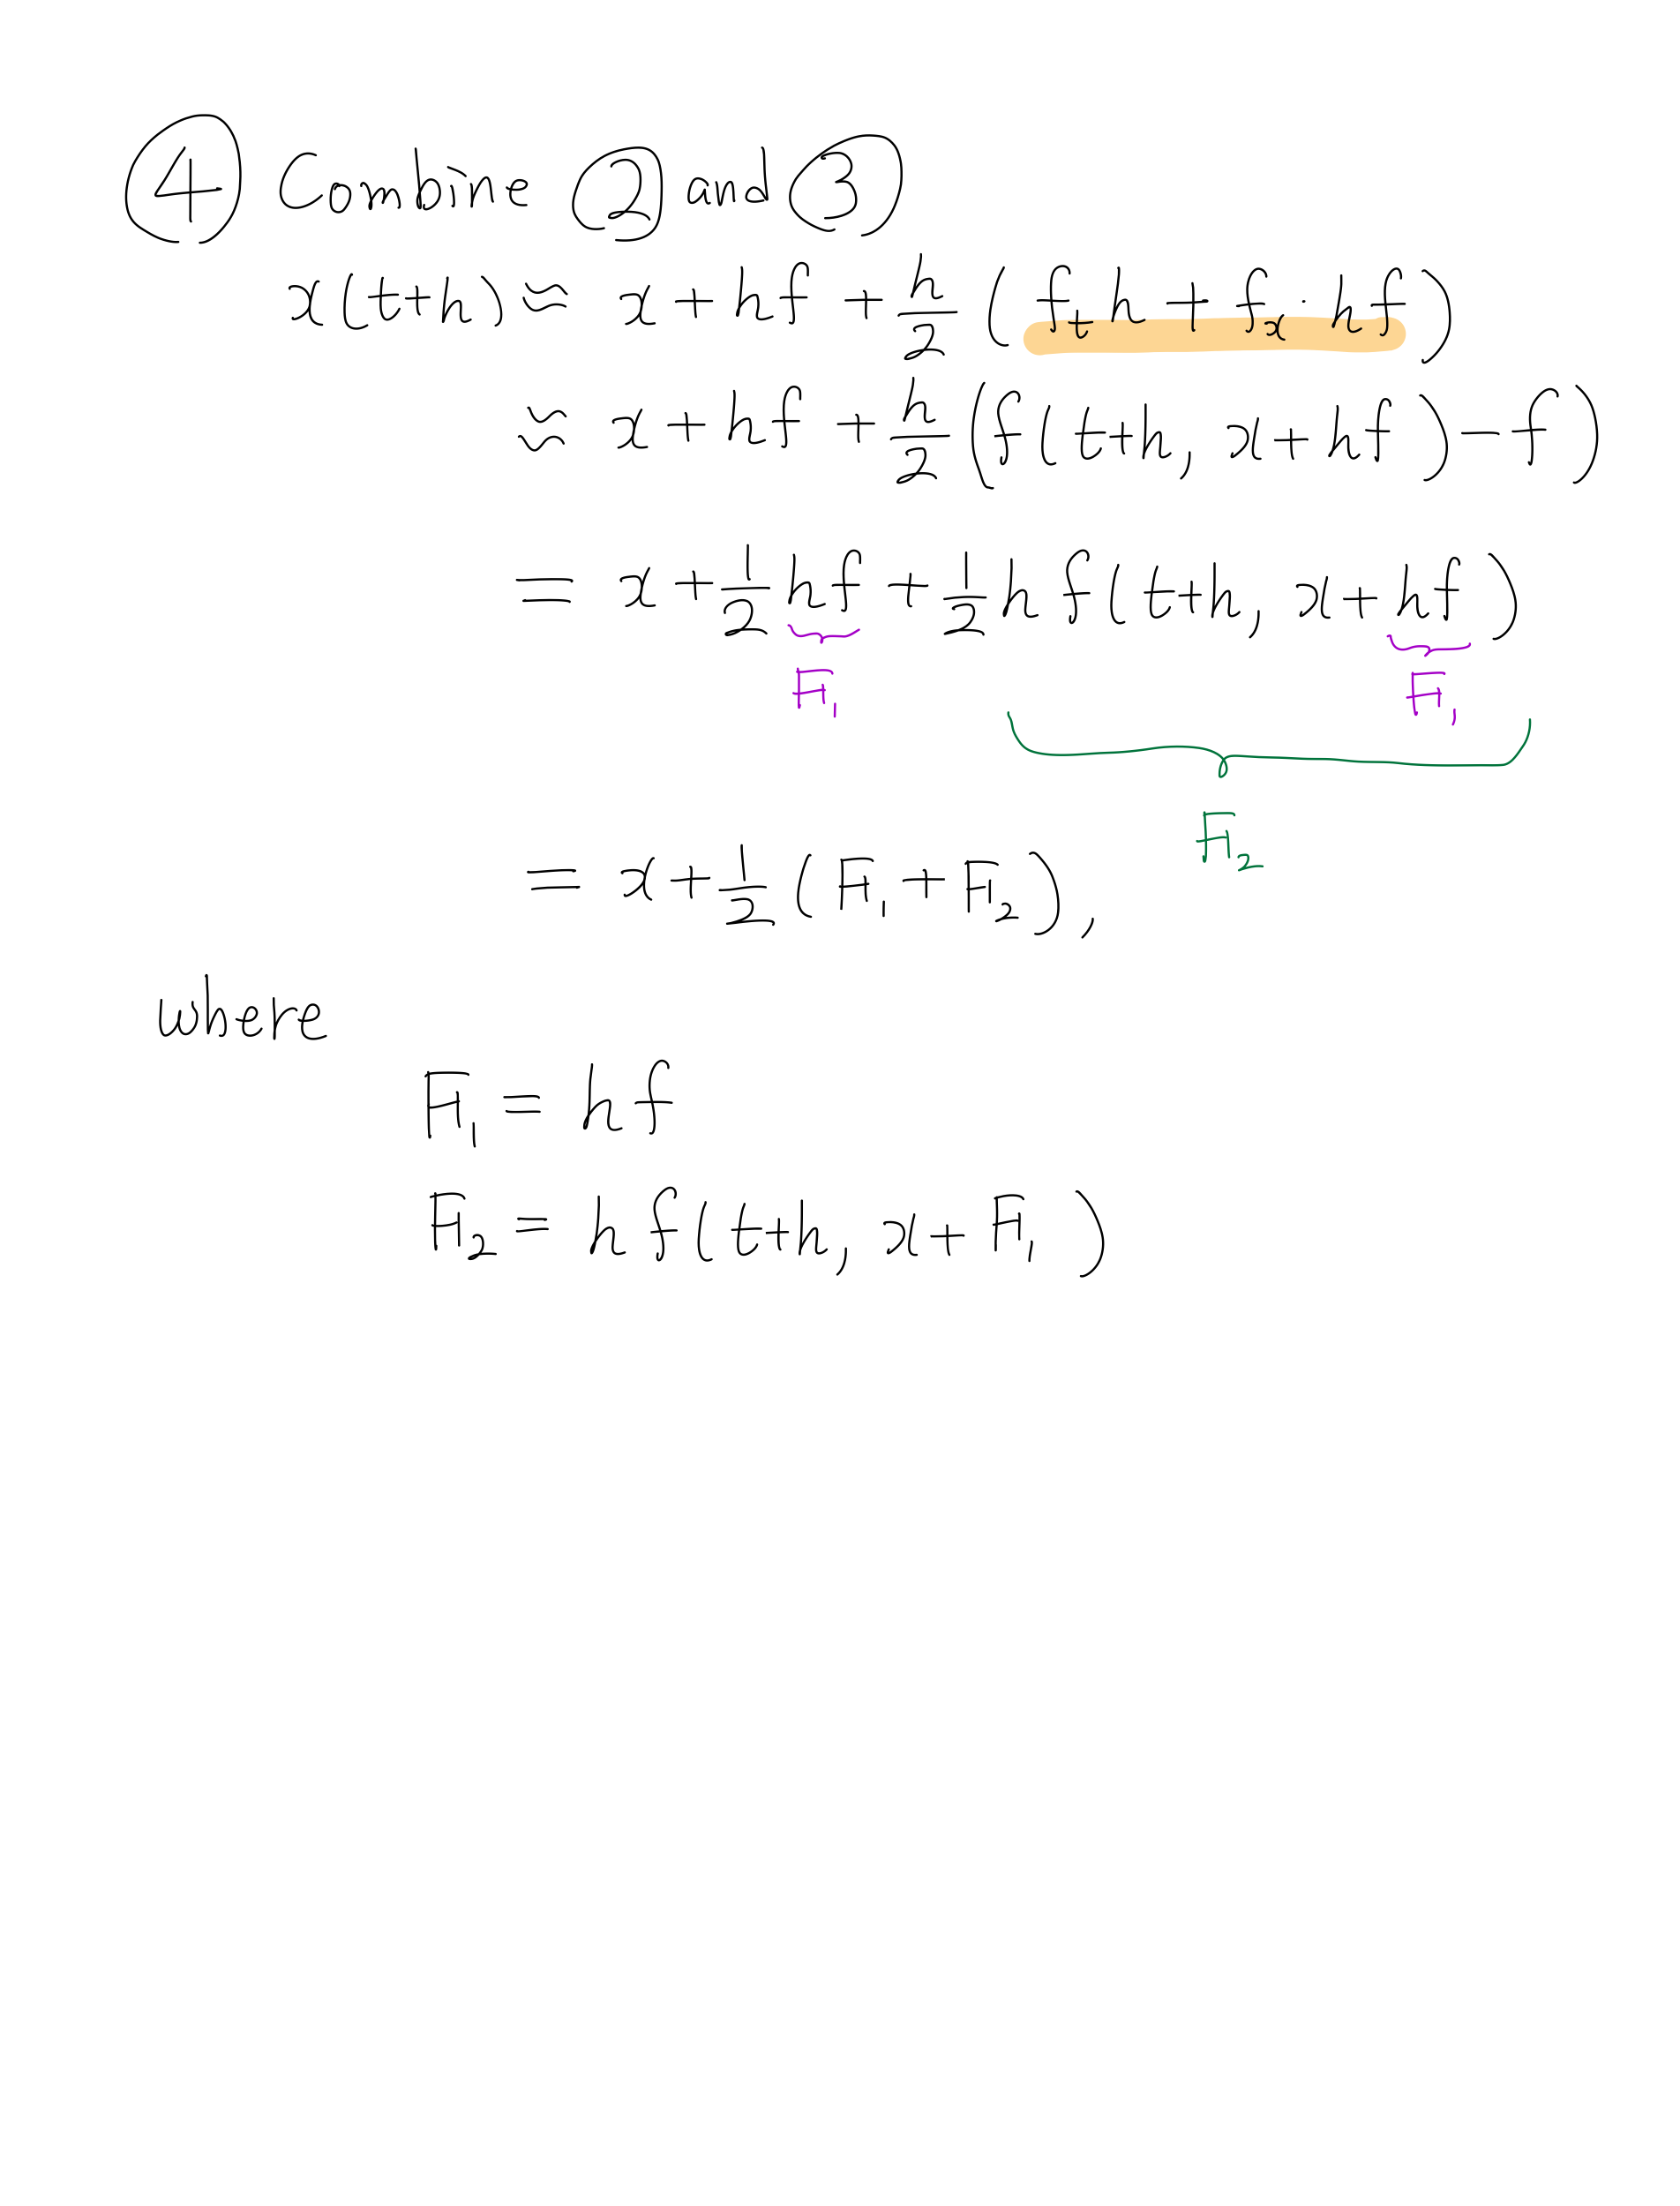 ④ Combine ② and ③
x(t+h) ≈ x + hf + h/2 ( f_t h + f_x · hf )
≈ x + hf + h/2 (f(t+h, x+hf) - f)
= x + 1/2 hf + 1/2 h f(t+h, x+hf)
F₁ F₁
F₂
= x + 1/2 (F₁ + F₂),
where
F₁ = hf
F₂ = h f(t+h, x+F₁)